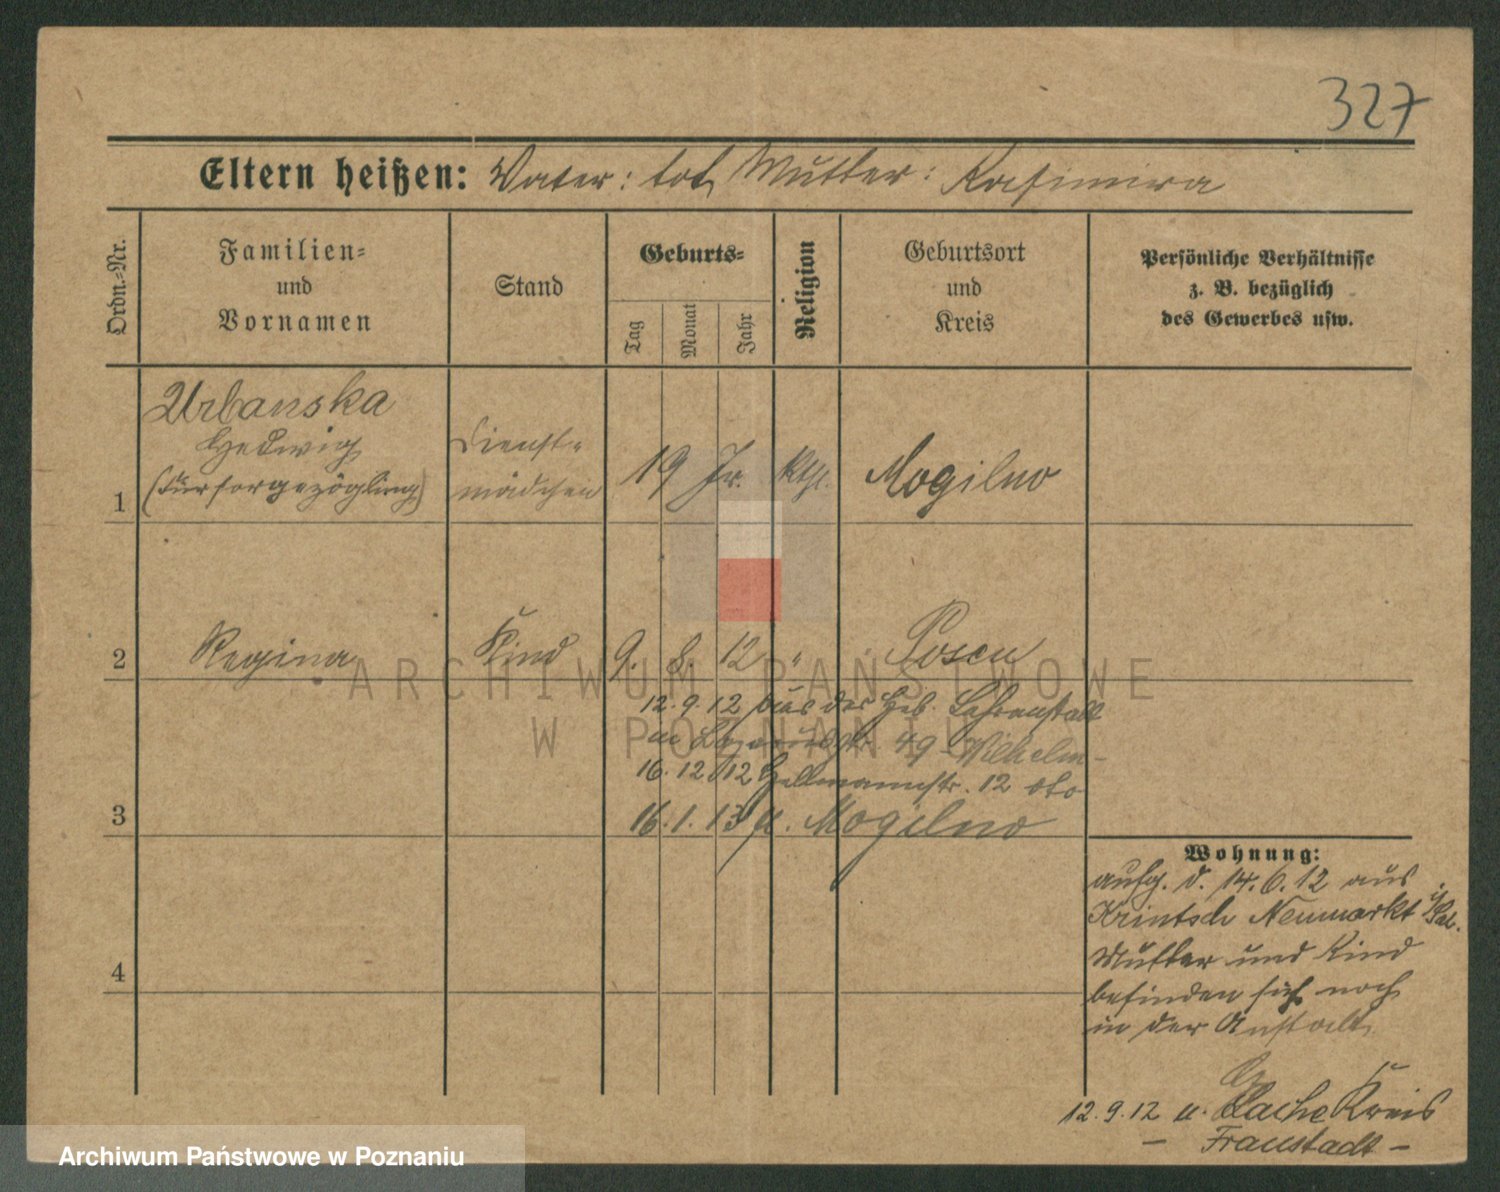 327
Eltern heißen: Vater: tot, Mutter: Kasimira
Ordn.-Nr.
Familien-
und
Vornamen
Stand
Geburts-
Tag
Monat
Jahr
Religion
Geburtsort
und
Kreis
Persönliche Verhältnisse
z. B. bezüglich
des Gewerbes usw.
1
Urbanska
Hedwig
(Fürsorgezögling)
Dienst-
mädchen
19 Jr.
kth.
Mogilno
2
Regina
Kind
9. 8. 12
"
Posen
12.9.12 aus der Heb. Lehranstalt
49 Wilhelm-
16.12.12 Hellmannstr. 12
3
16.1.13 n. Mogilno
4
Wohnung:
aufg. d. 14.6.12 aus
Krintsch Neumarkt
Mutter und Kind
befinden sich noch
in der Anstalt
12.9.12 n. Lache Kreis
– Fraustadt –
ARCHIWUM PAŃSTWOWE
W POZNANIU
Archiwum Państwowe w Poznaniu